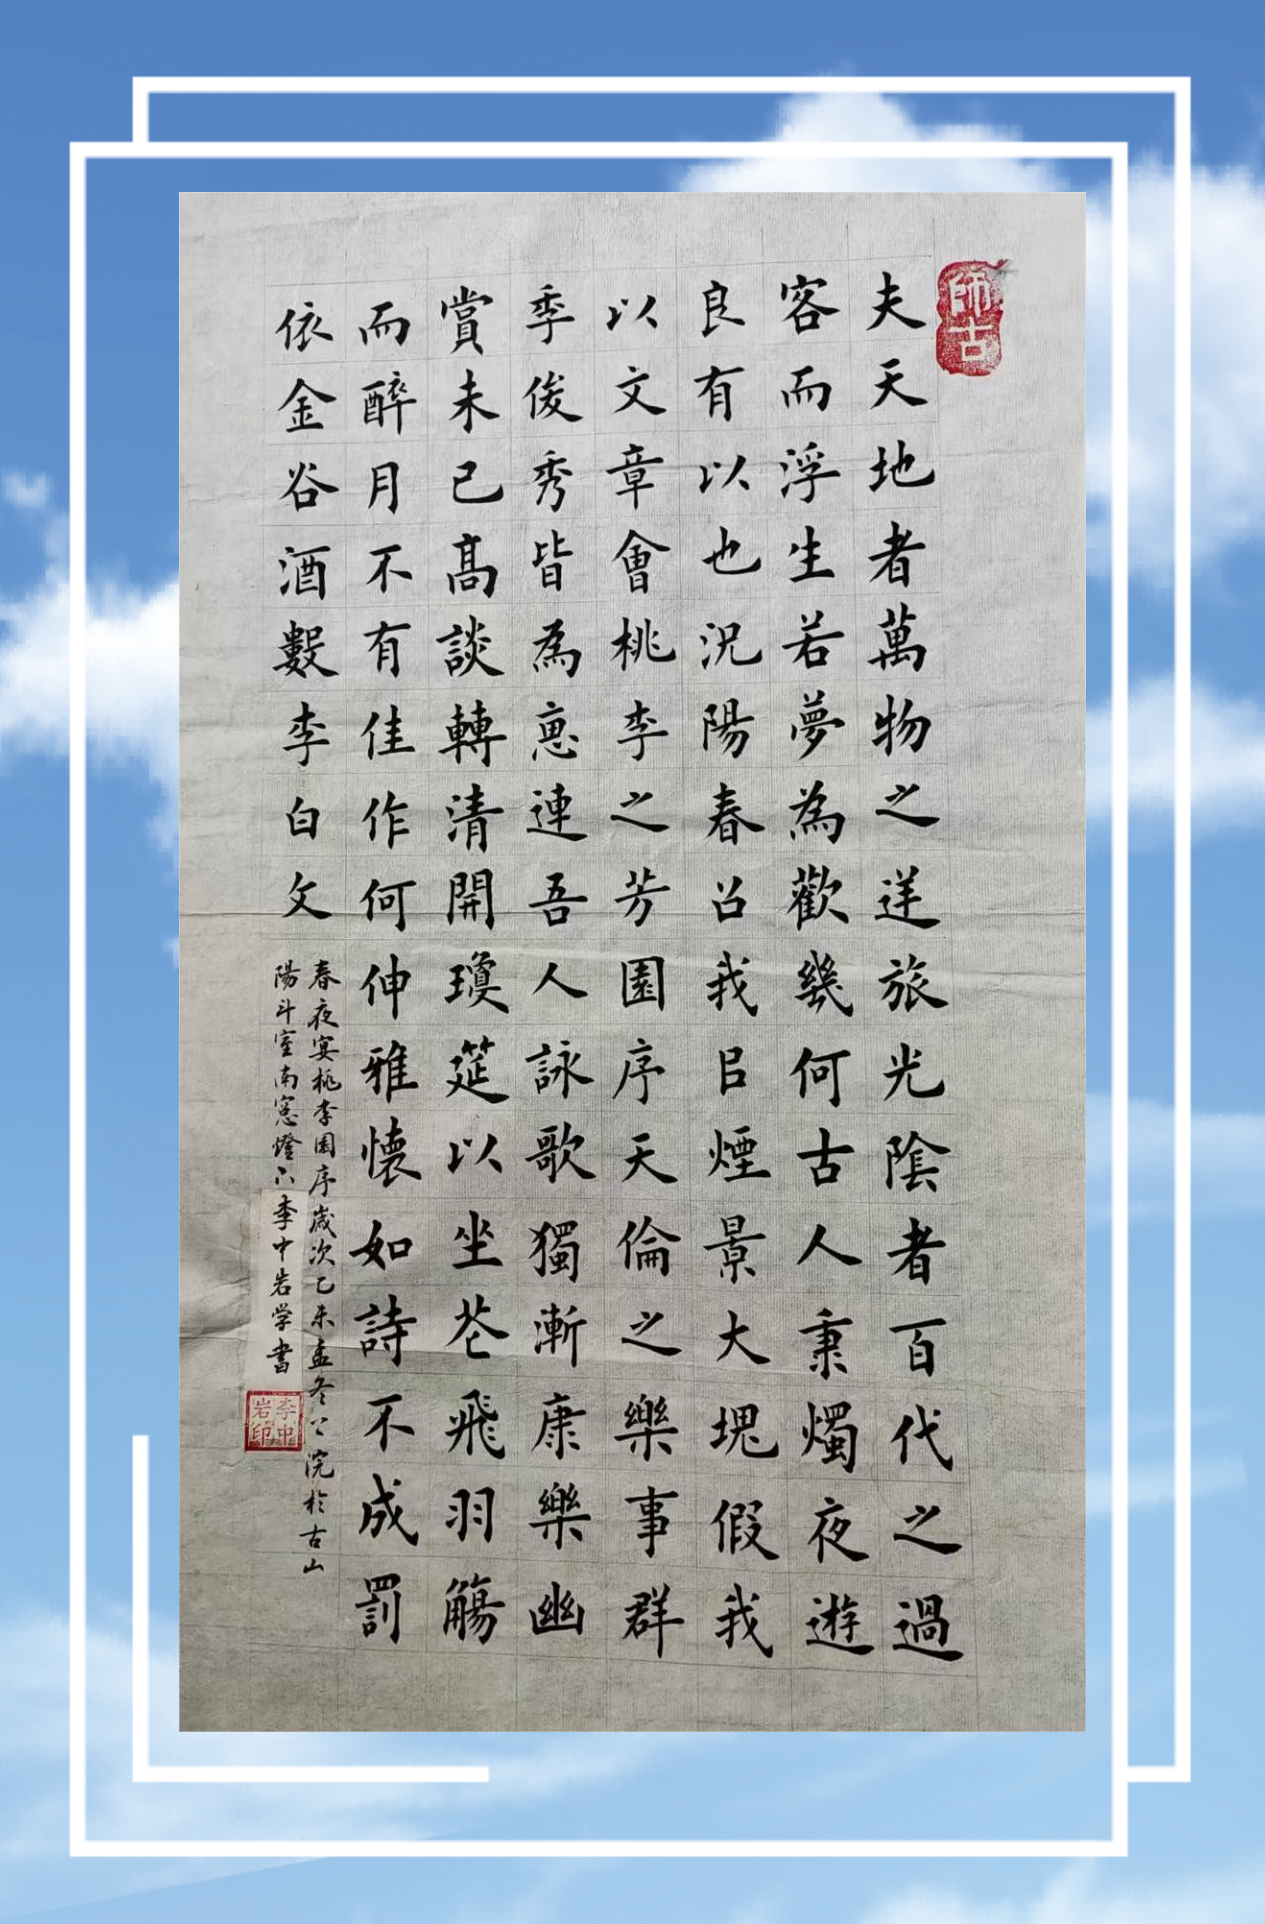 師古
夫天地者萬物之逆旅光陰者百代之過
容而浮生若夢為歡幾何古人秉燭夜遊
良有以也況陽春召我㠯煙景大塊假我
以文章會桃李之芳園序天倫之樂事群
季俊秀皆為惠連吾人詠歌獨漸康樂幽
賞未已高談轉清開瓊筵以坐花飛羽觴
而醉月不有佳作何伸雅懷如詩不成罰
依金谷酒數李白文
春夜宴桃李園序歲次乙未孟冬浣於古山
陽斗室南窓燈下李中岩学書
李中岩印